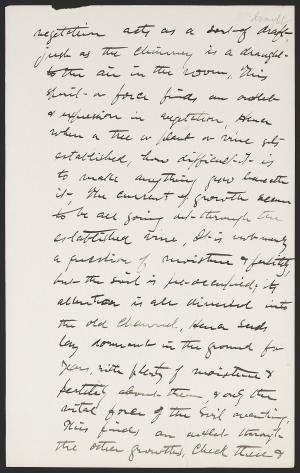 draught
vegetation acts as a sort of draft
just as the chimney is a draught
to the air in the room. This
spirit or force finds an outlet
& expression in vegetation. Hence
when a tree or plant or vine gets
established, how difficult it is
to make anything grow beneath
it. The current of growth seems
to be all going out through the
established vine. It is not merely
a question of moisture & fertility
but the soil is pre-occupied; its
attention is all directed into
the old channel. Hence seeds
lay dormant in the ground for
years, with plenty of moisture &
fertility about them, & only the
vital force of the soil awanting.
This finds an outlet through
the other growths. Check these &